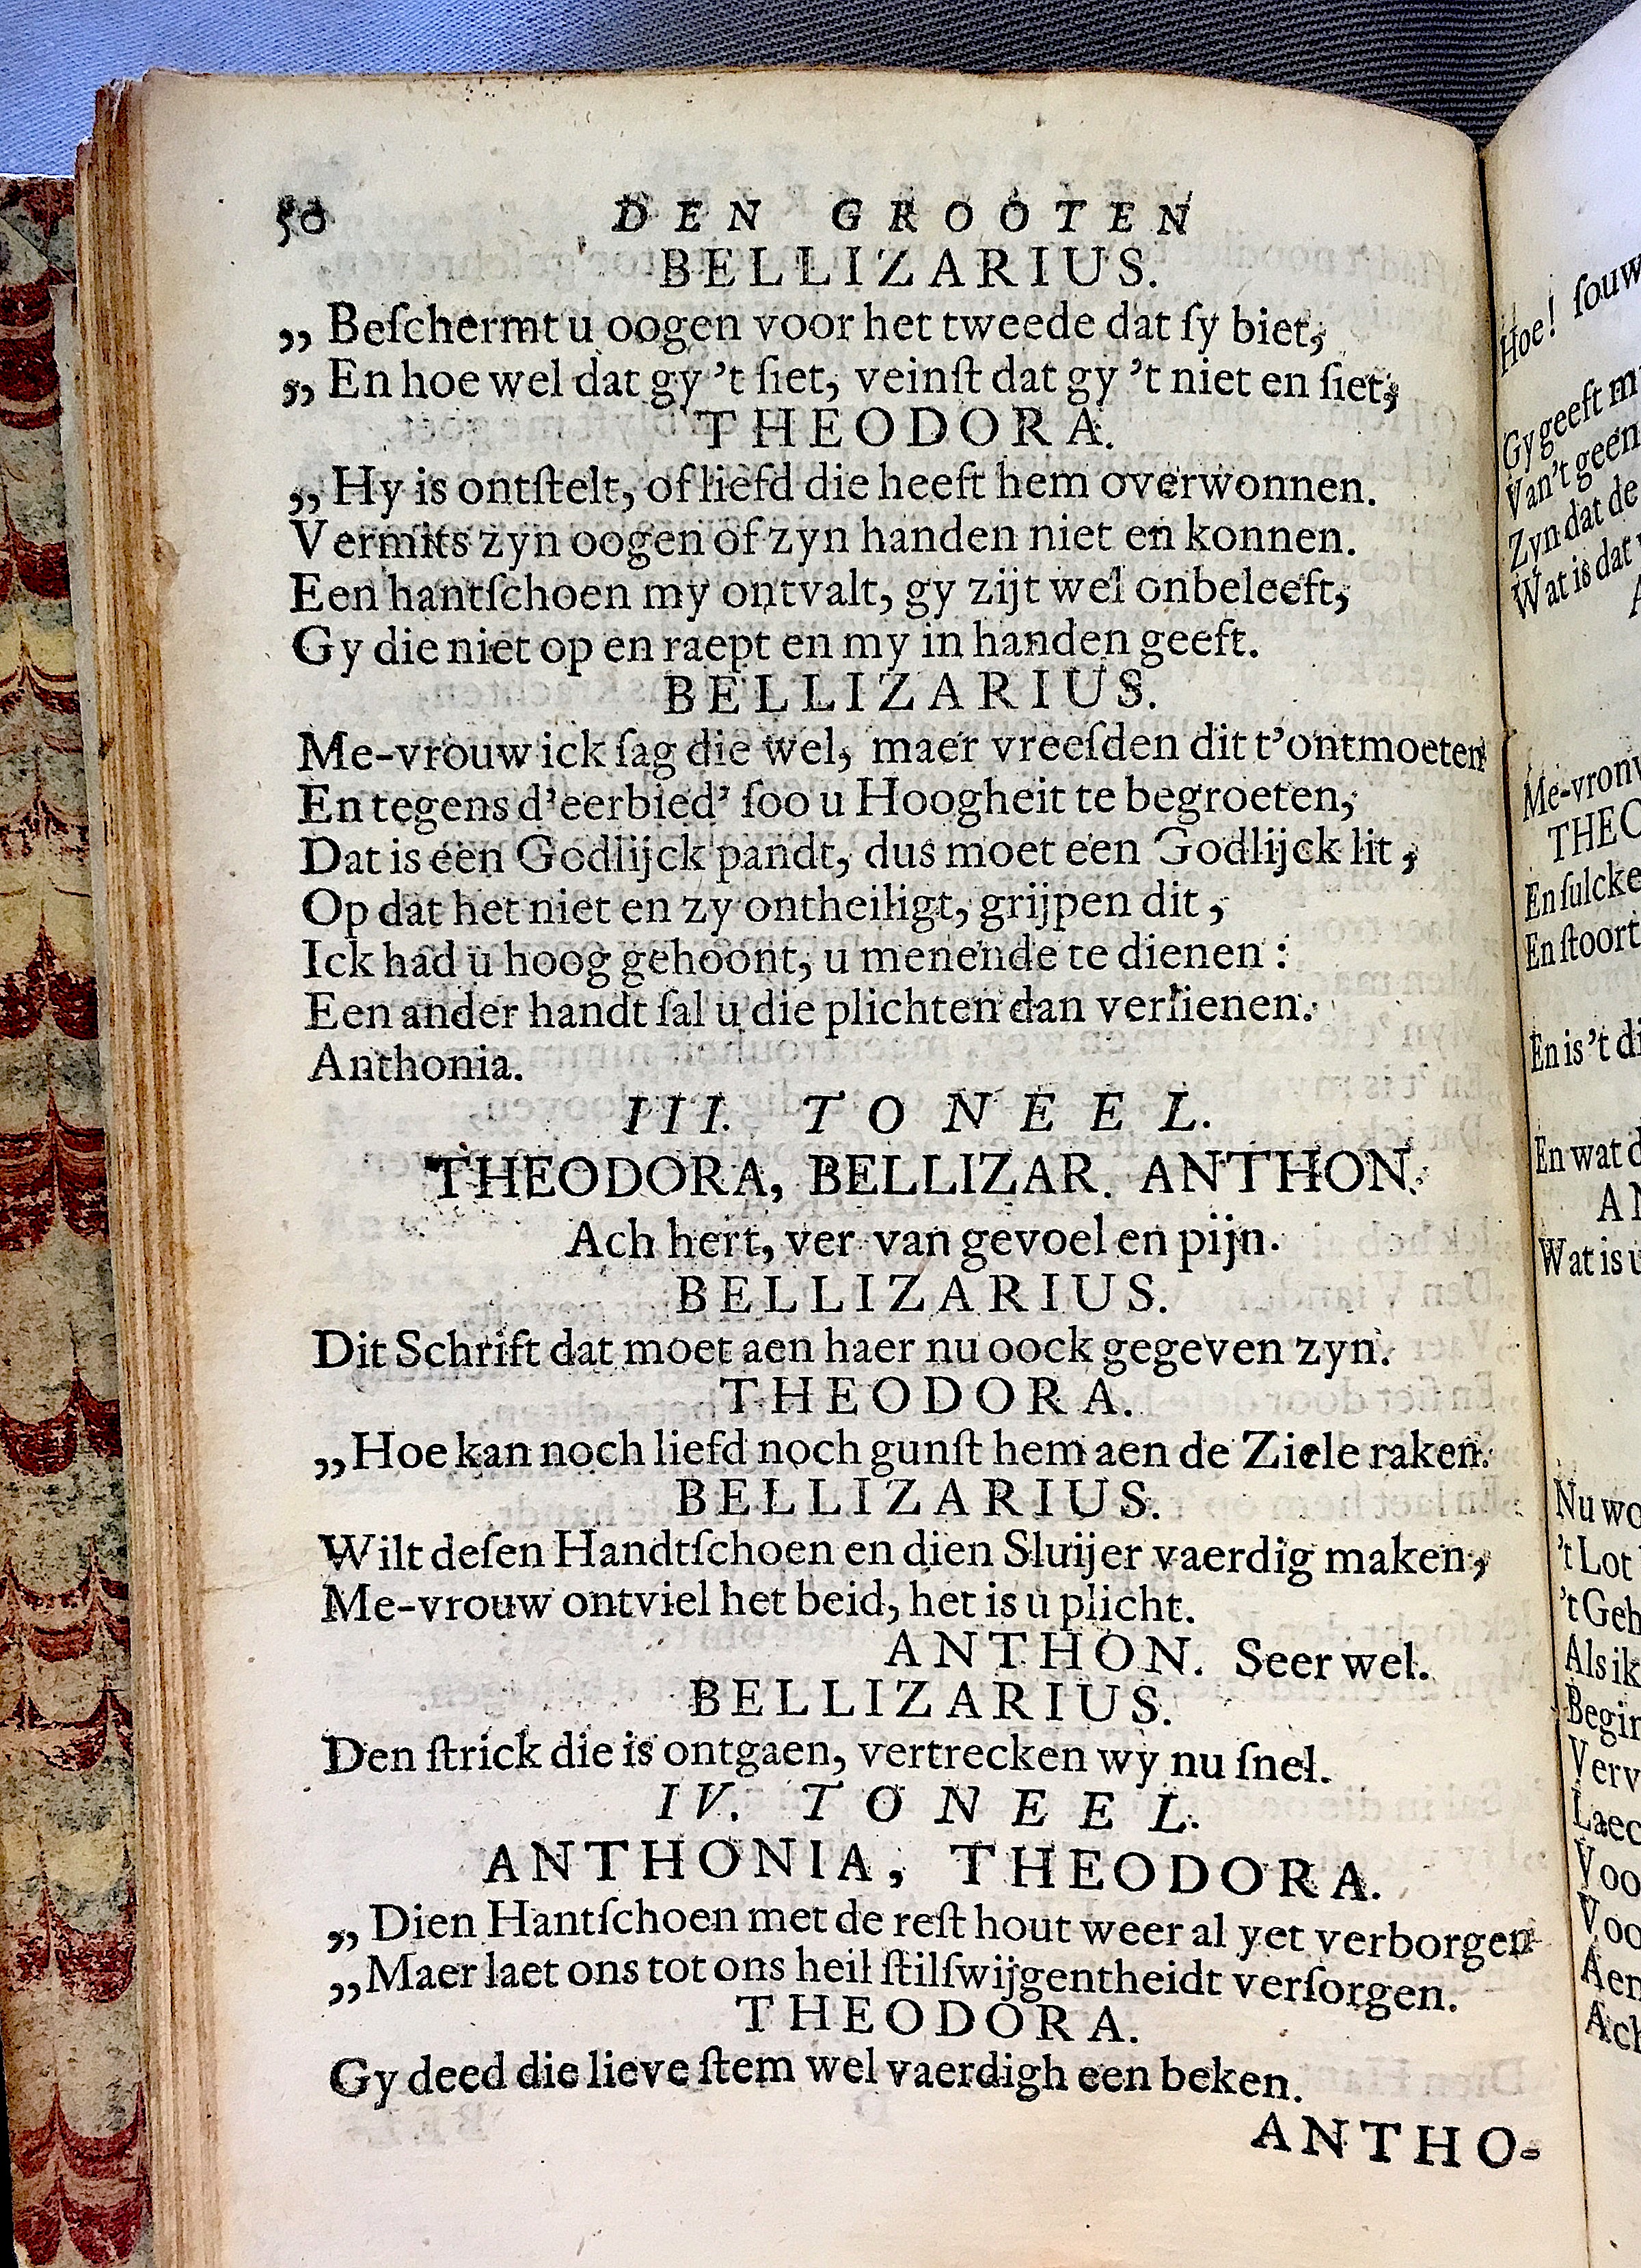 50 DEN GROOTEN
BELLIZARIUS.
„ Beſchermt u oogen voor het tweede dat ſy biet,
„ En hoe wel dat gy 't ſiet, veinſt dat gy 't niet en ſiet,
THEODORA.
„ Hy is ontſtelt, of liefd die heeft hem overwonnen.
Vermits zyn oogen of zyn handen niet en konnen.
Een hantſchoen my ontvalt, gy zijt wel onbeleeft,
Gy die niet op en raept en my in handen geeft.
BELLIZARIUS.
Me-vrouw ick ſag die wel, maer vreeſden dit t'ontmoeten
En tegens d'eerbied' ſoo u Hoogheit te begroeten,
Dat is een Godlijck pandt, dus moet een Godlijck lit,
Op dat het niet en zy ontheiligt, grijpen dit,
Ick had u hoog gehoont, u menende te dienen:
Een ander handt ſal u die plichten dan verlienen.
Anthonia.
III. TONEEL.
THEODORA, BELLIZAR. ANTHON.
Ach hert, ver van gevoel en pijn.
BELLIZARIUS.
Dit Schrift dat moet aen haer nu oock gegeven zyn.
THEODORA.
„ Hoe kan noch liefd noch gunſt hem aen de Ziele raken.
BELLIZARIUS.
Wilt deſen Handtſchoen en dien Sluijer vaerdig maken,
Me-vrouw ontviel het beid, het is u plicht.
ANTHON. Seer wel.
BELLIZARIUS.
Den ſtrick die is ontgaen, vertrecken wy nu ſnel.
IV. TONEEL.
ANTHONIA, THEODORA.
„ Dien Hantſchoen met de reſt hout weer al yet verborgen
„ Maer laet ons tot ons heil ſtilſwijgentheidt verſorgen.
THEODORA.
Gy deed die lieve ſtem wel vaerdigh een beken.
ANTHO-
Hoe!
Gy geeft
Van't geen
Zyn dat de
Wat is dat
Me-vronw
THEO
En ſulcke
En ſtoort
En is 't
En wat
Wat is
Nu
't Lot
't
Als ik